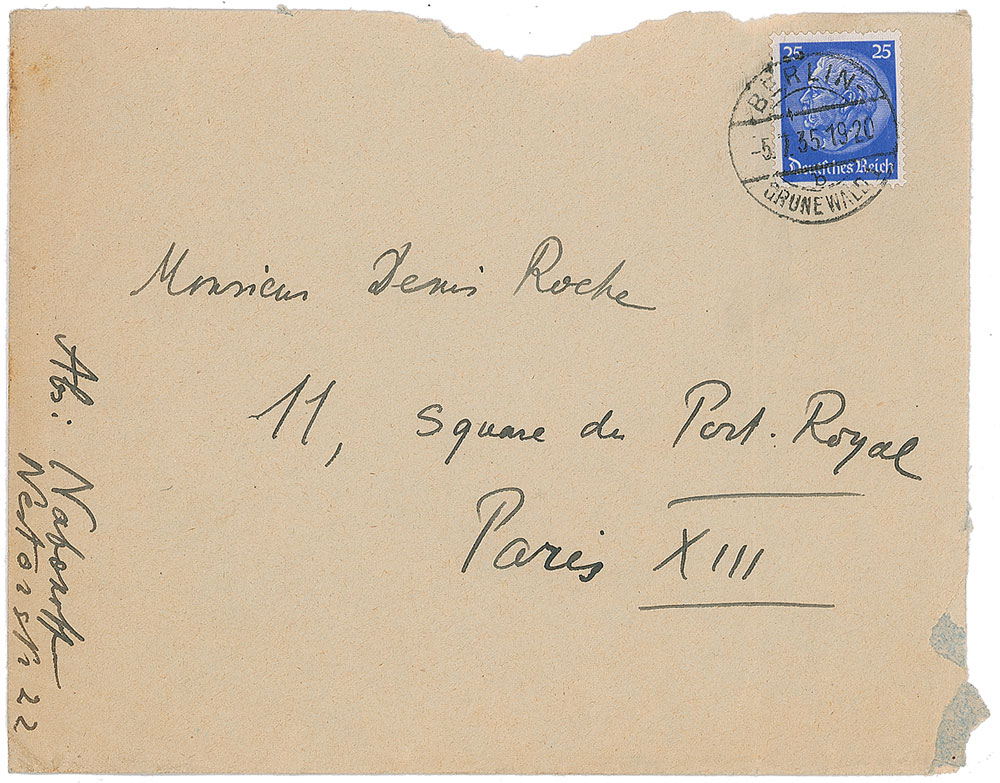 25 25
BERLIN
-5.7.35.19-20
Deutsches Reich
b
GRUNEWALD
Monsieur Denis Roche
11, square du Port-Royal
Paris XIII
Abs: Nabokoff
Nestorstr 22